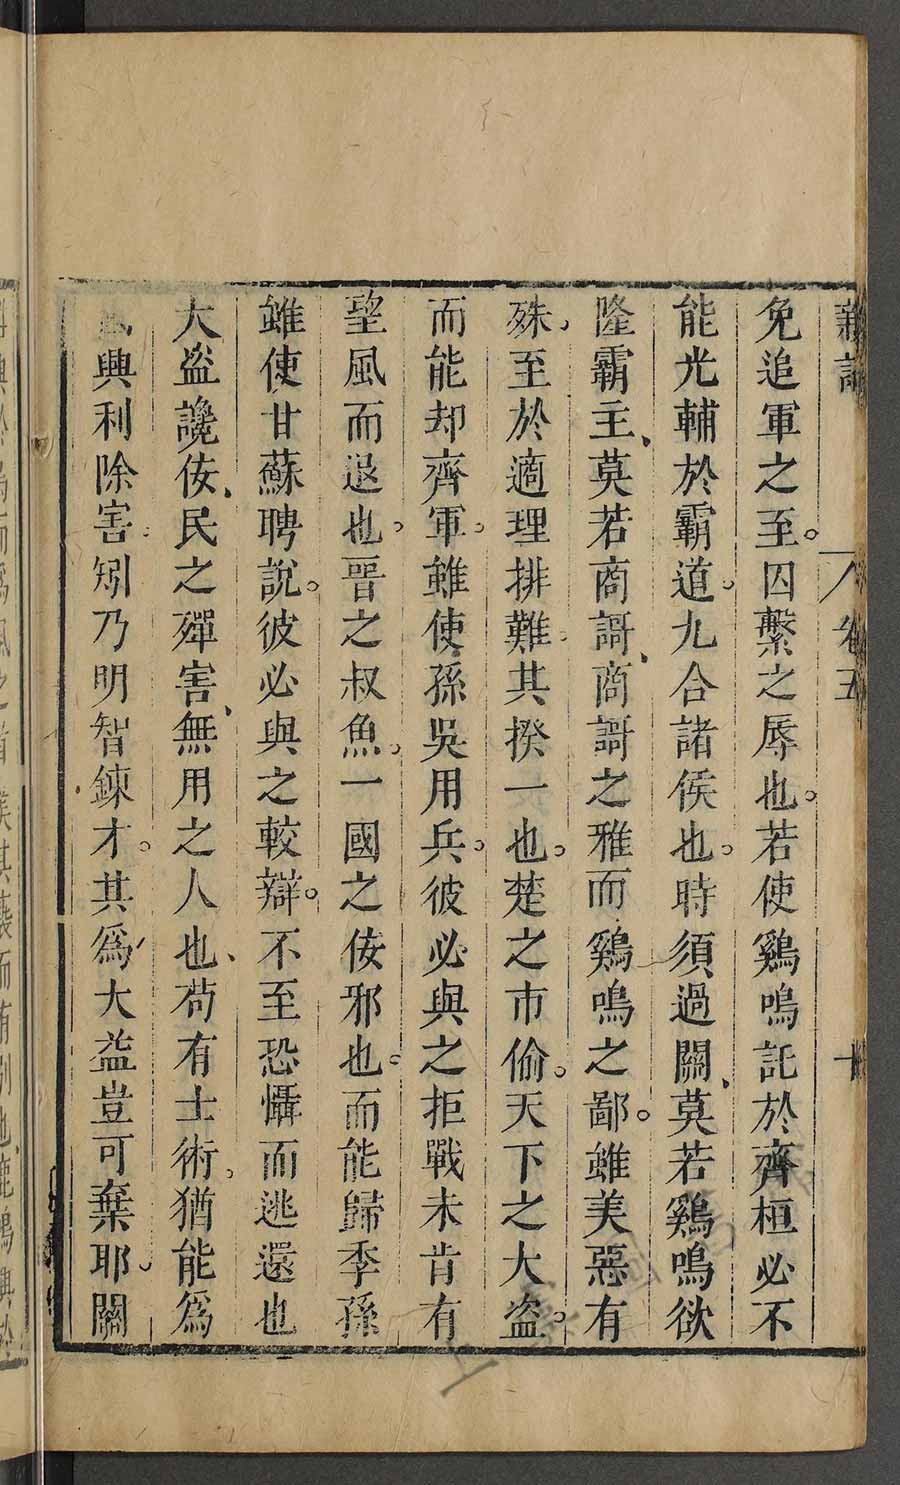 新論
卷五
十
免追軍之至。囚繫之辱也。若使鷄鳴託於齊桓必不
能光輔於霸道。九合諸侯也。時須過關、莫若鷄鳴欲
隆霸主、莫若商謌、商謌之雅而鷄鳴之鄙。雖美惡有
殊、至於適理排難。其揆一也。楚之市偷。天下之大盜。
而能却齊軍。雖使孫吳用兵。彼必與之拒戰未肯有
望風而退也。晉之叔魚。一國之佞邪也。而能歸季孫
雖使甘蘇聘說。彼必與之較辯。不至恐懾而逃還也
大盜讒佞、民之殫害、無用之人也、苟有士術。猶能爲
興利除害。矧乃明智鍊才。其爲大益豈可棄耶。關